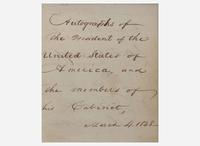 Autographs of
the President of the
United States of
America, and
the members of
his Cabinet,
March 4. 1868